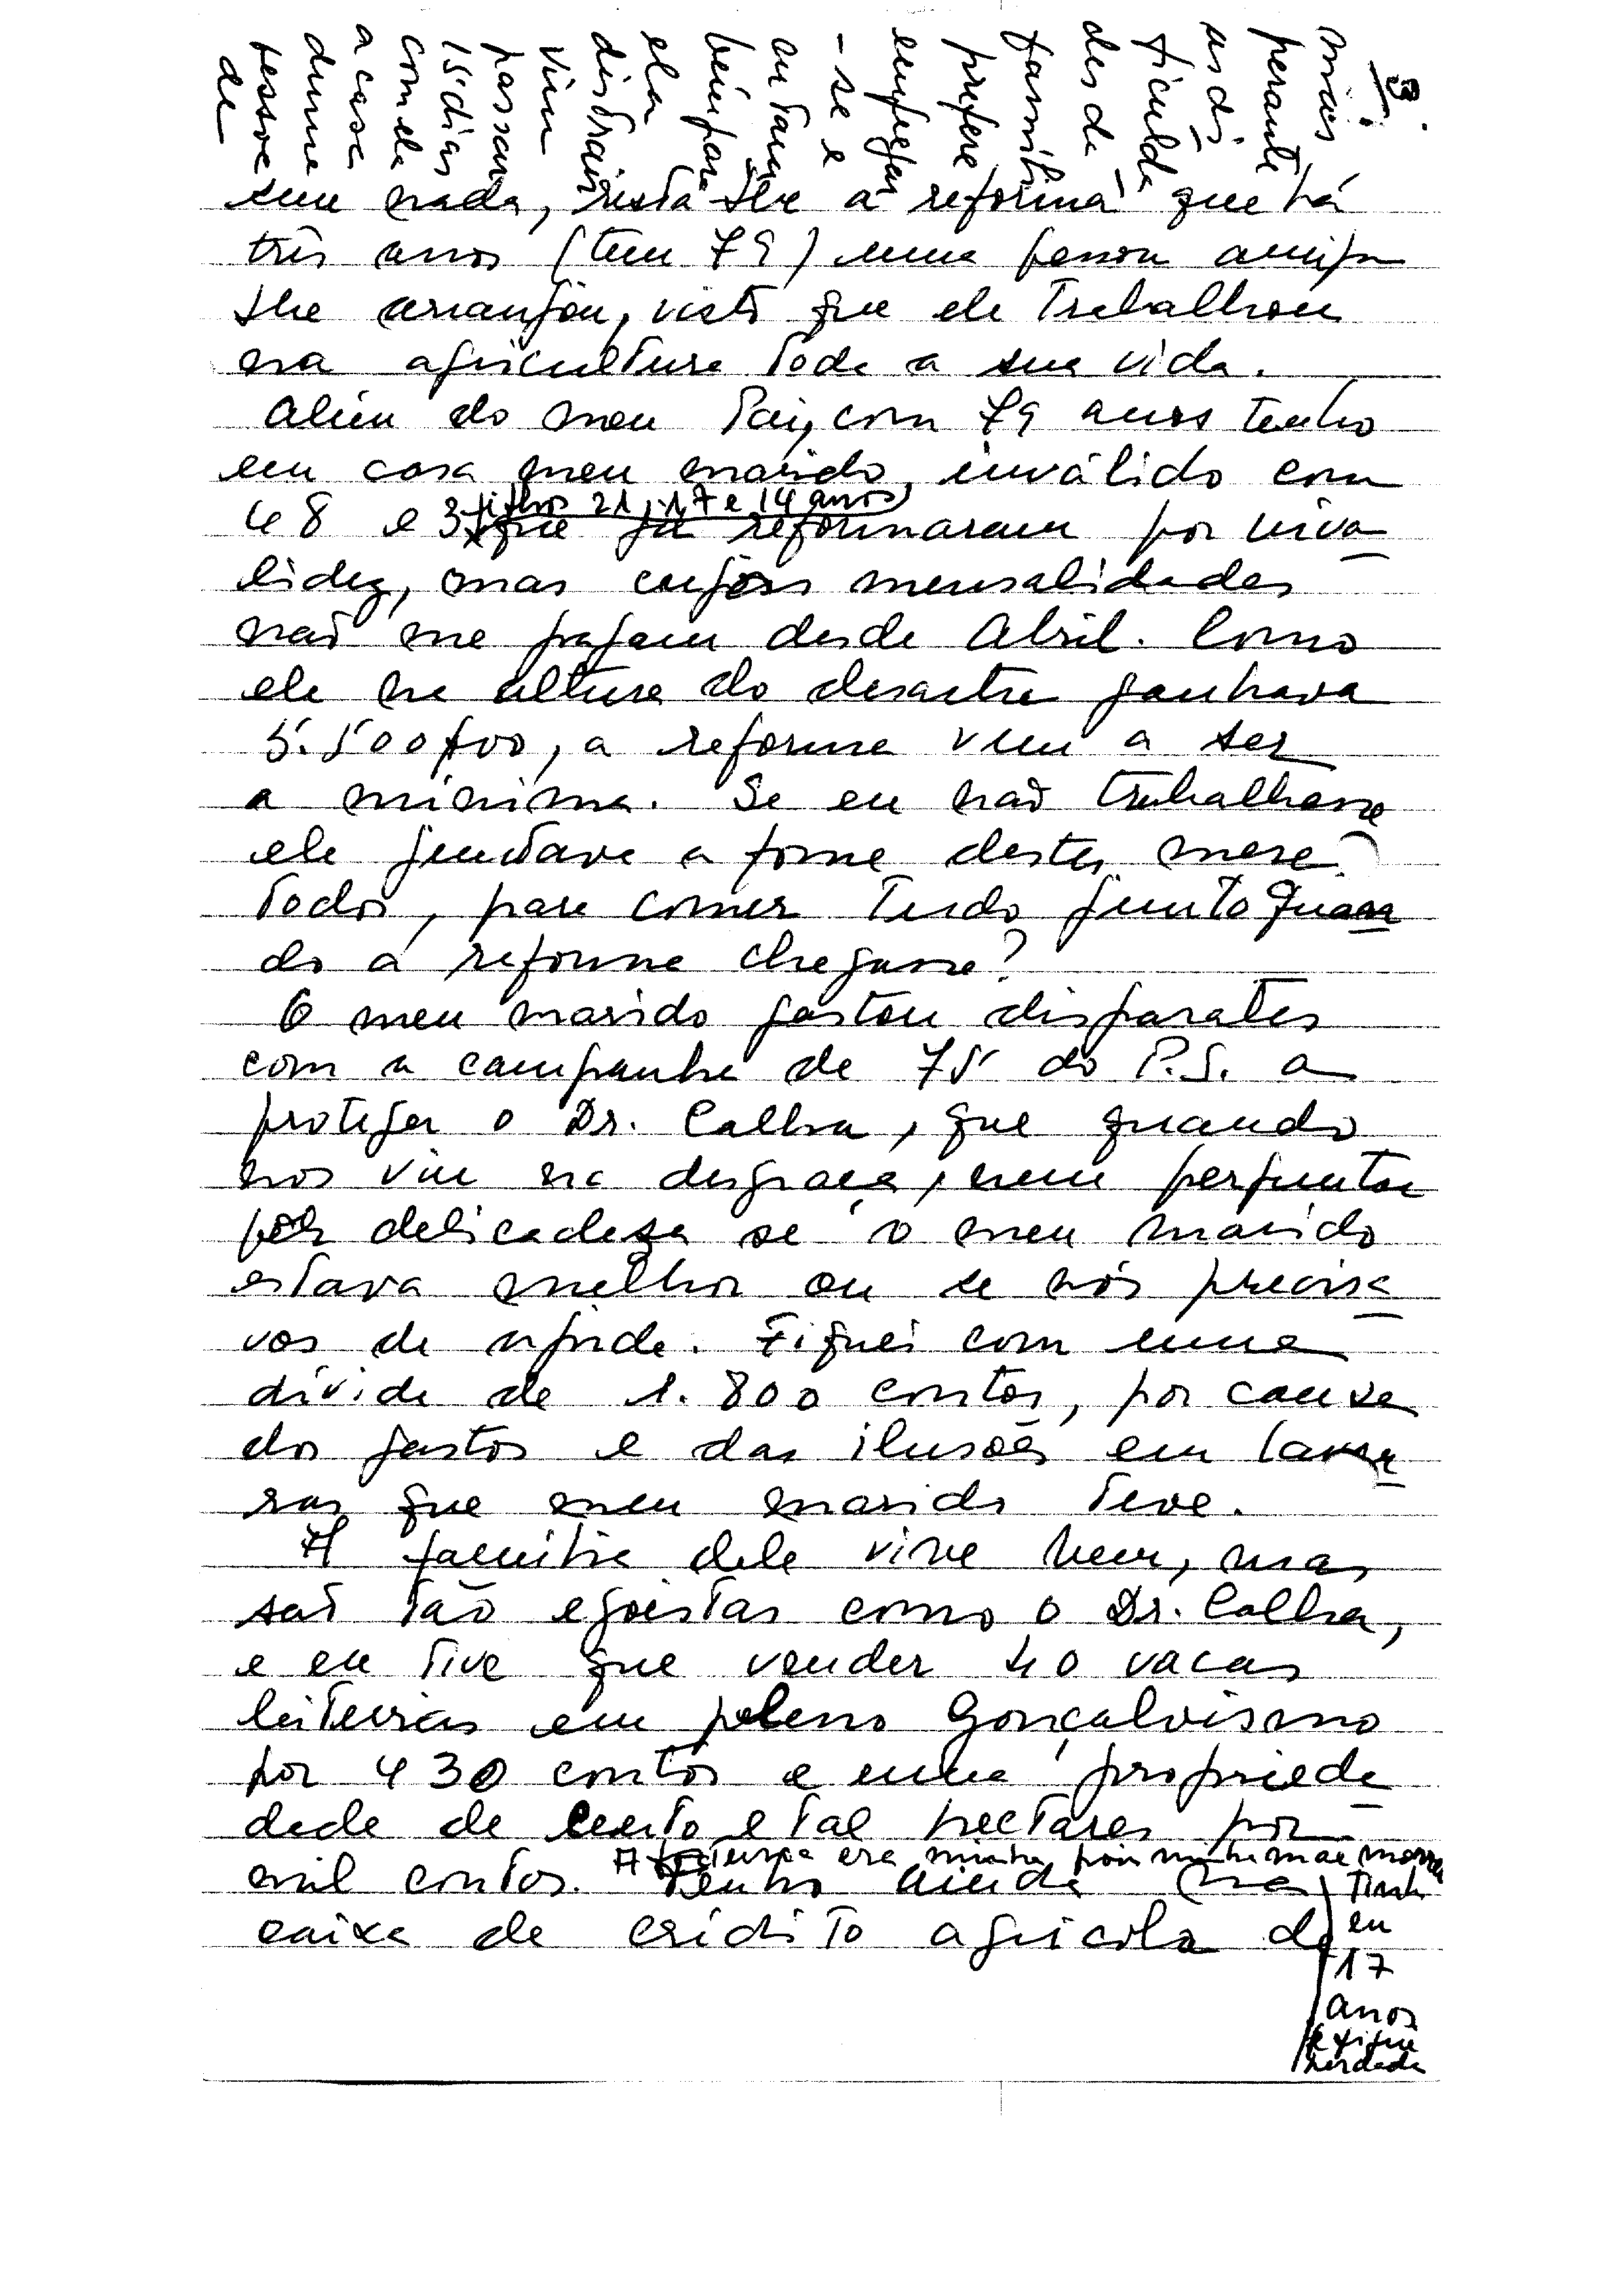 3.
mais
perante
as di
ficulda
des da
família
prefere
empregar
-se e
também para
ela
distrair
vim
passar
15 dias
com ela
a casa
duma
pessoa
de
sem nada, resta-lhe a reforma que há
três anos (tem 79) uma pessoa amiga
lhe arranjou, visto que ele trabalhou
na agricultura toda a sua vida.
Além do meu Pai, com 79 anos tenho
em casa meu marido, inválido com
48 e 3 filhos 21, 17 e 14 anos
que já reformaram por inva
lidez, mas cujas mensalidades
não me pagam desde Abril. Como
ele na altura do desastre ganhava
5.500$00, a reforma vem a ser
a mínima. Se eu não trabalhasse
ele juntava a fome destes meses
todos, para comer tudo junto quan
do a reforma chegasse?
O meu marido gastou disparates
com a campanha de 75 do P.S. a
proteger o Dr. Calha, que quando
nos viu na desgraça, nem perguntou
por delicadesa se o meu marido
estava melhor ou se nós precisa
vos de ajuda. Fiquei com uma
dívida de 1.800 contos, por causa
dos gastos e das ilusões em lavou
ras que meu marido teve.
A família dele vive bem, mas
são tão egoístas como o Dr. Calha,
e eu tive que vender 40 vacas
leiteiras em pleno Gonçalvismo
por 430 contos e uma propriede
dade de cento e tal hectares por
mil contos. Tenho ainda na
A terra era minha pois minha mãe morreu
tinha
eu
17
anos
e fiquei
herdada
caixa de crédito agrícola de